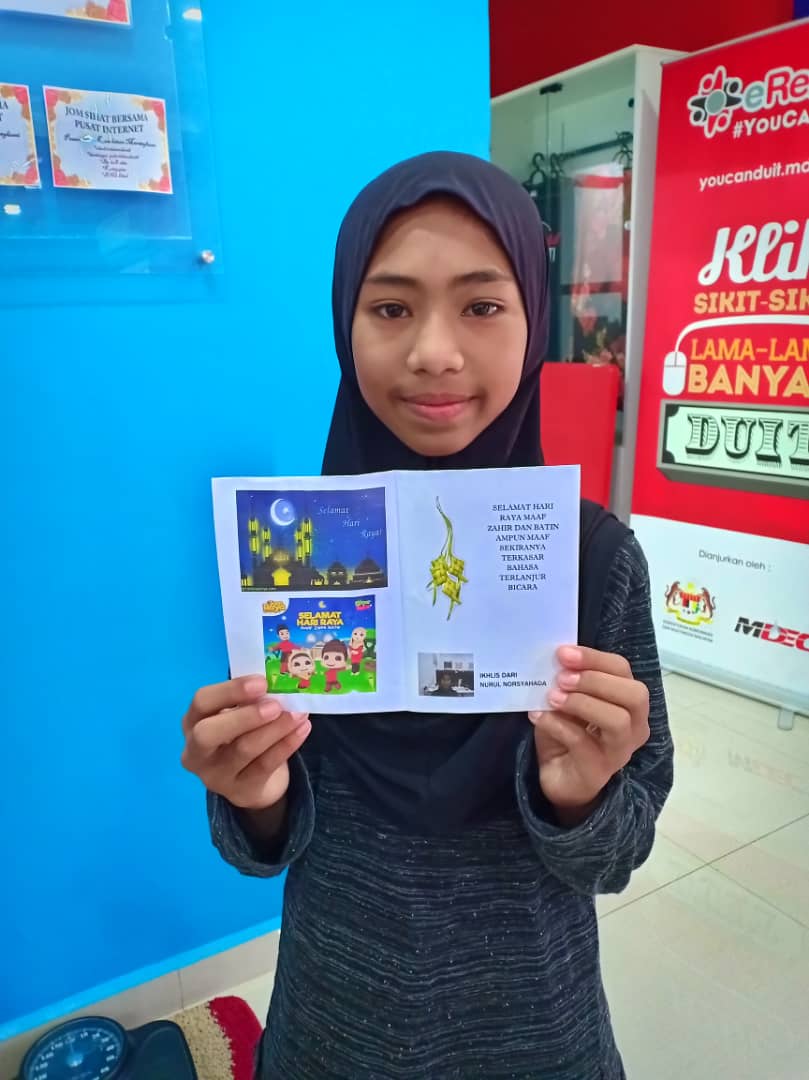 JOM SIHAT BERSAMA
PUSAT INTERNET
eRe
#YOUCAN
youcanduit.mo
Klik
SIKIT-SIK
LAMA-LAM
BANYA
DUIT
Dianjurkan oleh :
MDEC
Selamat
Hari
Raya!
SELAMAT
HARI RAYA
SELAMAT HARI
RAYA MAAF
ZAHIR DAN BATIN
AMPUN MAAF
SEKIRANYA
TERKASAR
BAHASA
TERLANJUR
BICARA
IKHLIS DARI
NURUL NORSYAHADA